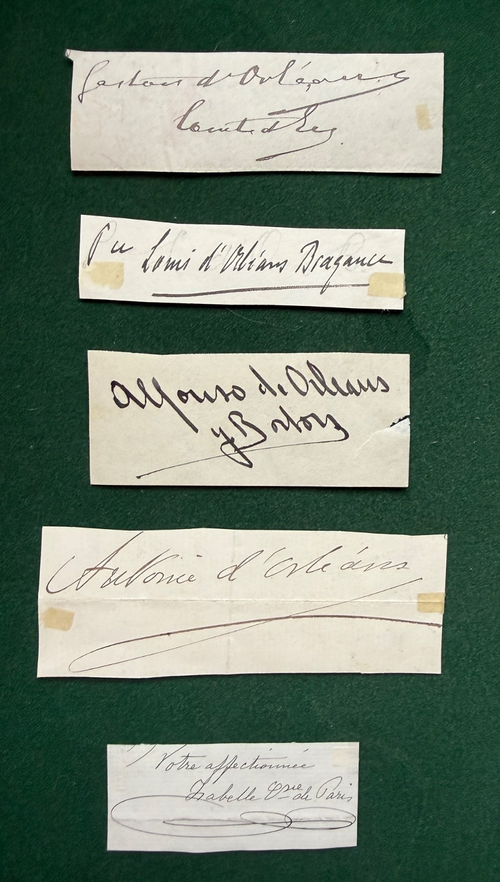 Gaston d'Orléans
Comte d'Eu
Pce Louis d'Orléans Bragance
Alfonso de Orleans
y Borbon
Antoine d'Orléans
Votre affectionnée
Isabelle Ctsse de Paris